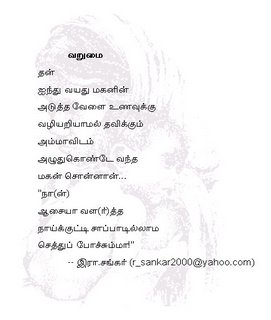 வறுமை
தன்
ஐந்து வயது மகனின்
அடுத்த வேளை உணவுக்கு
வழியறியாமல் தவிக்கும்
அம்மாவிடம்
அழுதுகொண்டே வந்த
மகன் சொன்னான்...
"நா(ன்)
ஆசையா வள(ர்)த்த
நாய்க்குட்டி சாப்பாடில்லாம
செத்துப் போச்சும்மா!"
-- இரா.சங்கர் (r_sankar2000@yahoo.com)